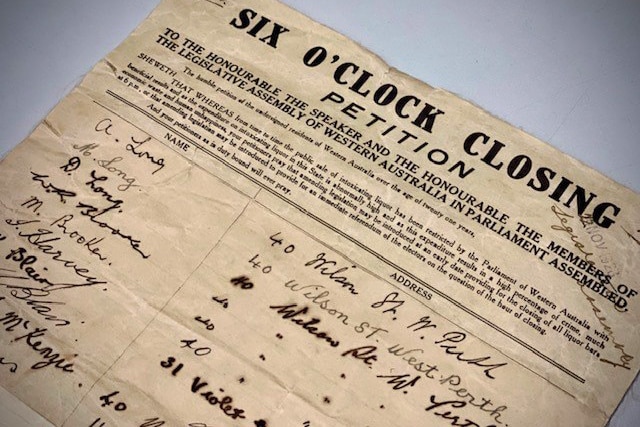 SIX O'CLOCK CLOSING
PETITION
TO THE HONOURABLE THE SPEAKER AND THE HONOURABLE THE MEMBERS OF
THE LEGISLATIVE ASSEMBLY OF WESTERN AUSTRALIA IN PARLIAMENT ASSEMBLED,
The humble petition of the undersigned residents of Western Australia over the age of twenty one years,
SHEWETH THAT WHEREAS from time to time the public sale of intoxicating liquor has been restricted by the Parliament of Western Australia with
beneficial results and as the expenditure on intoxicating liquor in this State is abnormally high and as this expenditure results in a high percentage of crime, much
economic waste and human unhappiness your petitioners pray that amending legislation may be introduced at an early date providing for the closing of all liquor bars
at 6 p.m. or that amending legislation may be introduced to provide for an immediate referendum of the electors on the question of the hour of closing.
And your petitioners as is duty bound will ever pray.
NAME ADDRESS
A. Long 40 Wilson St. W. Perth
M. Long. 40 Wilson ST. West Perth.
D. Long. 40 Wilson St. W. Perth
M. Brooker. 40 " "
J. Harvey 40 " "
Blair 40 "
31 Violet
McKenzie. 40